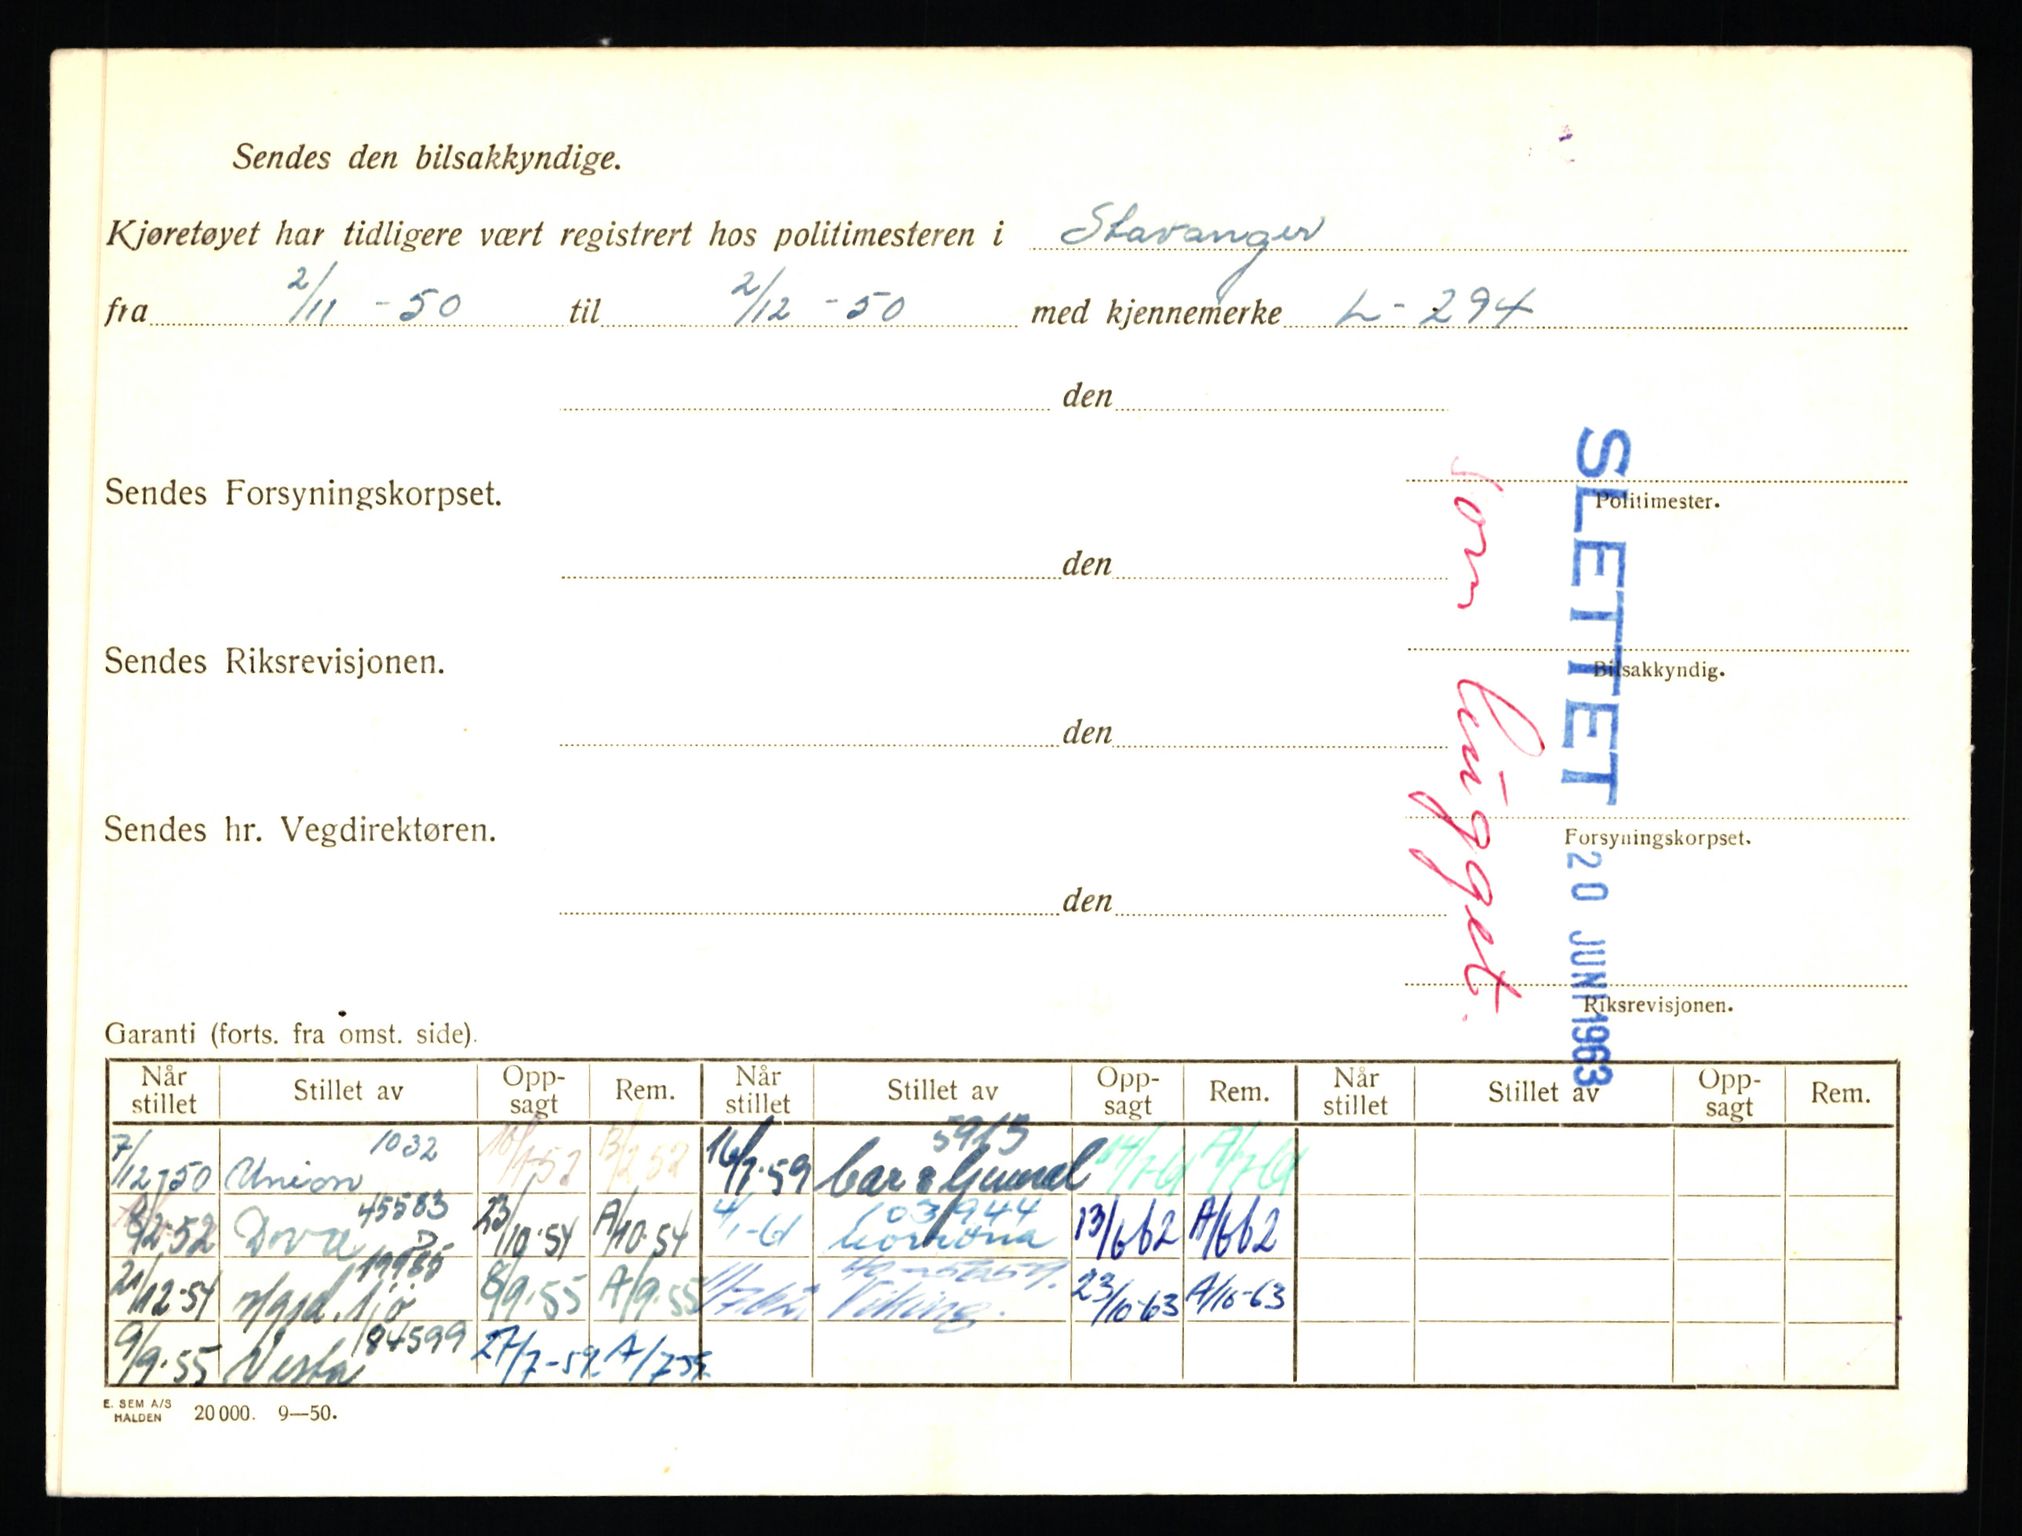 Sendes den bilsakkyndige.
Kjøretøyet har tidligere vært registrert hos politimesteren i Stavanger
fra 2/11 - 50 til 2/12 - 50 med kjennemerke L - 294
den
Politimester.
Sendes Forsyningskorpset.
den
Bilsakkyndig.
Sendes Riksrevisjonen.
den
Forsyningskorpset.
Sendes hr. Vegdirektøren.
den
Riksrevisjonen.
SLETTET
20 JUNI 1963
Som hugget.
Garanti (forts. fra omst. side).
Når stillet Stillet av Opp-sagt Rem. Når stillet Stillet av Opp-sagt Rem. Når stillet Stillet av Opp-sagt Rem.
7/12-50 Union 1032 16/7-59 5913
2-52 45583 23/10-54 A/10-54 4/1-61 103944 13/6 62 A/6 62
21/12-54 8/9-55 A/9-55 Viking. 23/10-63 A/10-63
9/9-55 Vesta 184599 27/7-59 A/7-59
E. SEM A/S HALDEN 20 000. 9—50.